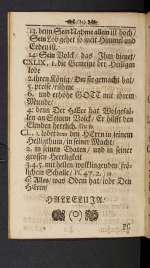 13. denn Sein Nahme allein ist hoch/
Sein Lob gehet so weit Himmel und
Erden ist.
14. Sein Volck/ das Ihm dienet/
CXLIX. 1. die Gemeine der Heiligen
lobe
2. ihren König/ Der sie gemacht hat/
3. preise seine Nahme/
6. und erhöhe GOTT mit ihrem
Munde;
4. denn Der HErr hat Wolgefallen
an Seinem Volcke/ Er hilfft den
Elenden herrlich.
CL. 1. lobet den HErrn in seinem
Heiligthum/ seiner Macht;
2. in seinen Thaten/ und in seiner
grossen Herrligkeit
3.4.5. mit hellen/ wolklingenden/ frölichen
Schalle/
6. Alles/ was Odem hat/ lobe Den
HErrn/
HALLELUJA.